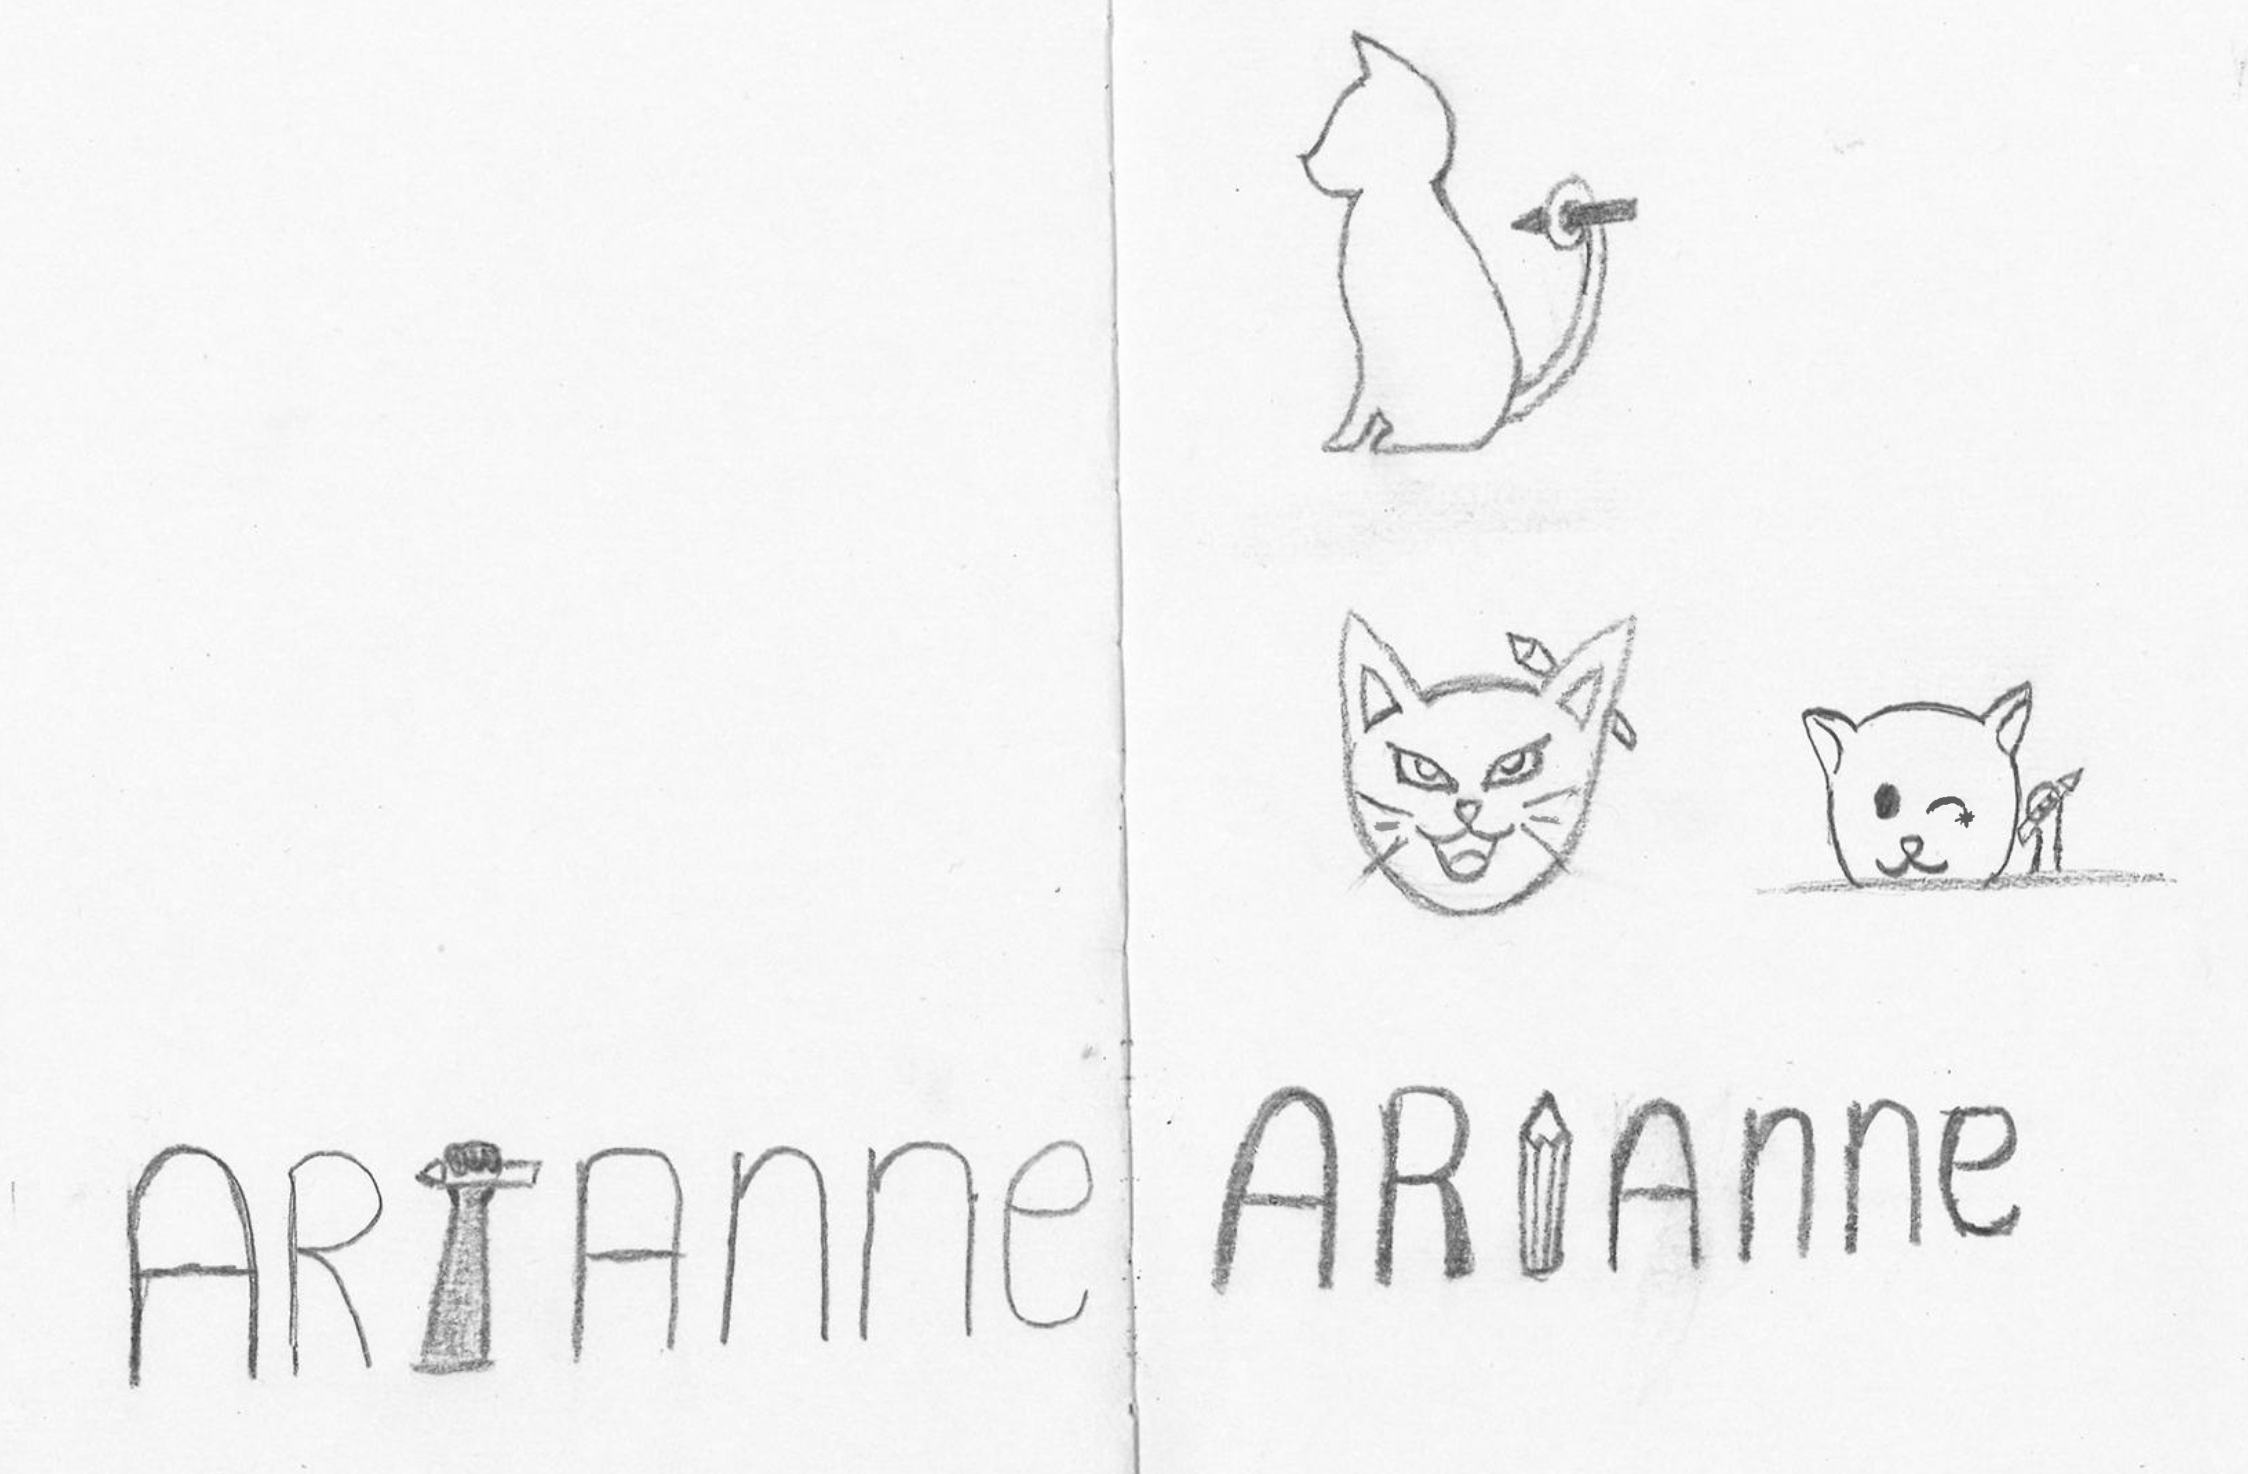 ARIAnne
ARIAnne